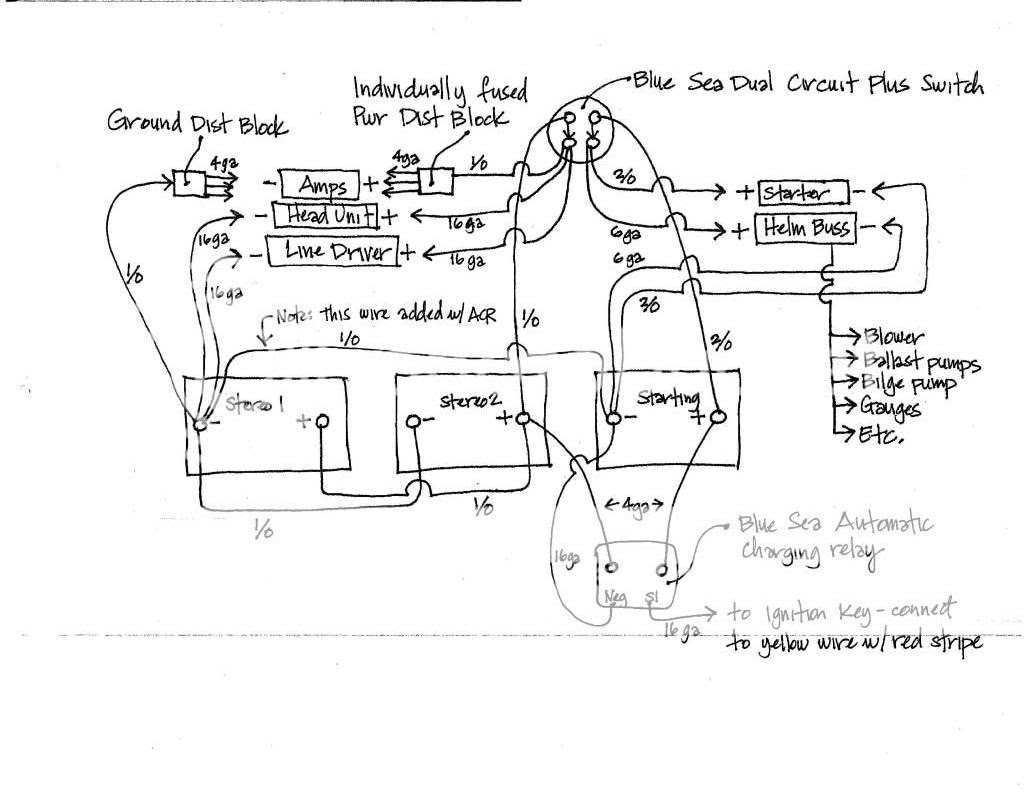 Blue Sea Dual Circuit Plus Switch
Individually fused
Pwr Dist Block
Ground Dist Block
4ga
4ga
1/0
- Amps +
- Head Unit +
- Line Driver +
16ga
16ga
16ga
16ga
1/0
2/0
6ga
6ga
2/0
+ Starter -
+ Helm Buss -
Note: this wire added w/ ACR
1/0
1/0
2/0
Blower
Ballast pumps
Bilge pump
Gauges
Etc.
Stereo 1
- +
Stereo 2
- +
Starting
- +
1/0
1/0
4ga
16ga
Blue Sea Automatic
charging relay
Neg SI
16 ga
to Ignition Key - connect
to yellow wire w/ red stripe